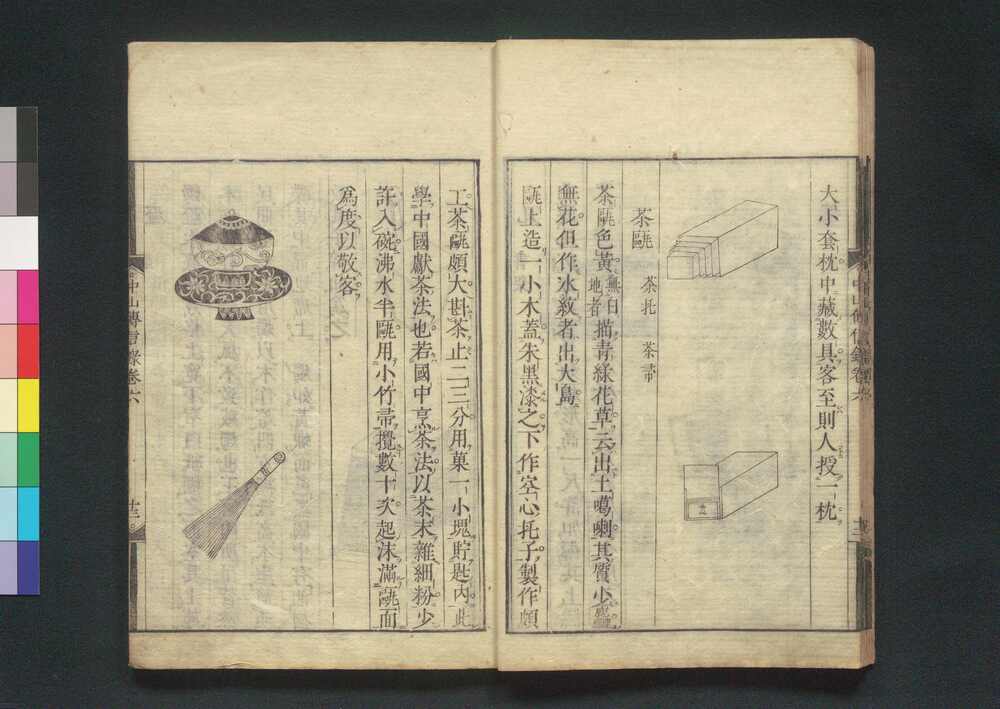 中山傳信錄卷六
大小套枕中藏數具客至則人授一枕
茶甌 茶托 茶帚
茶甌色黃無白地者描青綠花草云出土噶喇其質少麤
無花但作冰紋者出大島
甌上造一小木蓋朱黑漆之下作空心托子製作頗
工茶甌頗大斟茶止二三分用菓一小塊貯匙內此
學中國獻茶法也若國中烹茶法以茶末雜細粉少
許入碗沸水半甌用小竹帚攪數十次起沫滿甌面
爲度以敬客
中山傳信錄卷六
十三